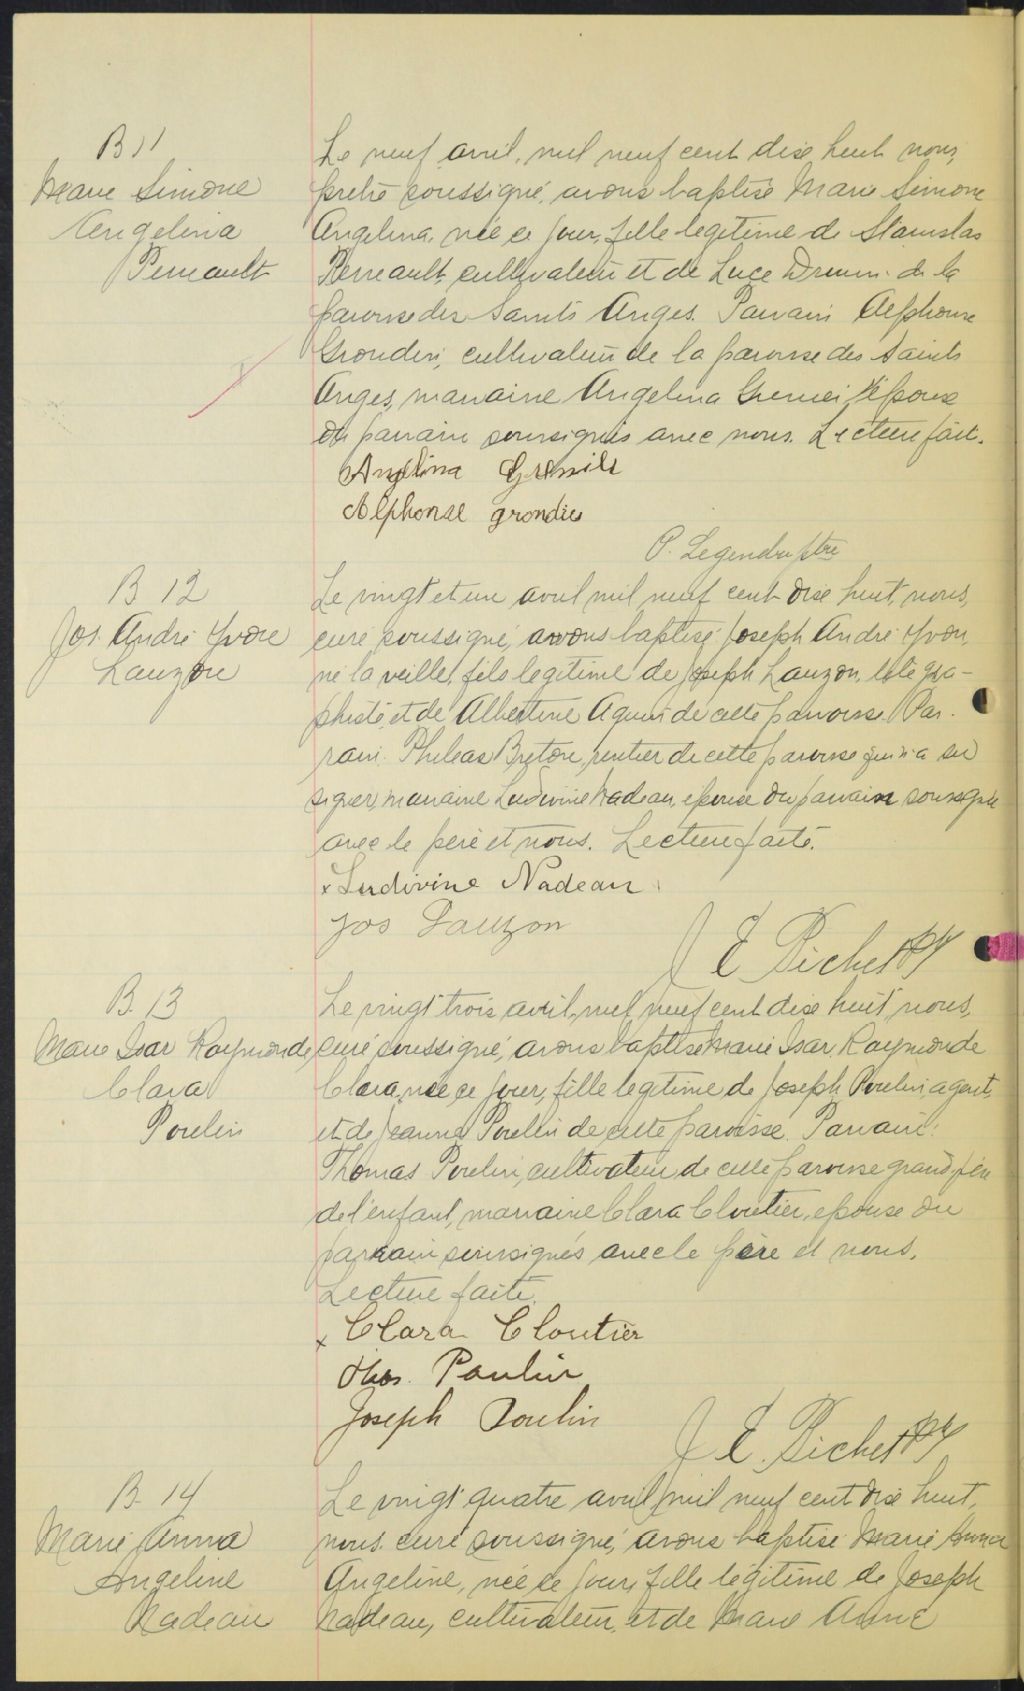 B 11
Marie Simone
Angelina
Perreault
Le neuf avril, mil neuf cent dix huit nous,
prêtre soussigné, avons baptisé Marie Simone
Angelina, née ce jour, fille legitime de Stanislas
Perreault, cultivateur et de Luce Drouin de la
paroisse des Saints Anges. Parrain Alphonse
Grondin, cultivateur de la paroisse des Saints
Anges, marraine Angelina Grenier, épouse
du parrain soussignés avec nous. Lecture faite.
Angélina Grenier
Alphonse grondin
P. Legendre ptre
B 12
Jos. André Yvon
Lauzon
Le vingt et un avril mil neuf cent dix huit, nous,
curé soussigné, avons baptisé Joseph André Yvon,
né la veille, fils legitime de Joseph Lauzon, télégra-
phiste, et de Albertine de cette paroisse. Par-
rain. Philéas Breton, rentier de cette paroisse qui n'a su
signer, marraine Ludivine Nadeau, épouse du parrain soussignée
avec le père et nous. Lecture faite.
x Ludivine Nadeau
Jos Lauzon
J E Pichet
B. 13
Marie Isar Raymonde
Clara
Poulin
Le vingt trois avril, mil neuf cent dix huit nous,
curé soussigné, avons baptisé Marie Isar Raymonde
Clara, née ce jour, fille legitime de Joseph Poulin, agent,
et de Jeanne Poulin de cette paroisse. Parrain:
Thomas Poulin, cultivateur de cette paroisse grand père
de l'enfant, marraine Clara Cloutier, épouse du
parrain soussignés avec le père et nous.
Lecture faite.
x Clara Cloutier
Thos. Poulin
Joseph Poulin
J E. Pichet
B. 14
Marie Anna
Angeline
Nadeau
Le vingt quatre avril mil neuf cent dix huit,
nous curé soussigné, avons baptisé Marie Anna
Angeline, née ce jour, fille légitime de Joseph
Nadeau, cultivateur, et de Marie Anne